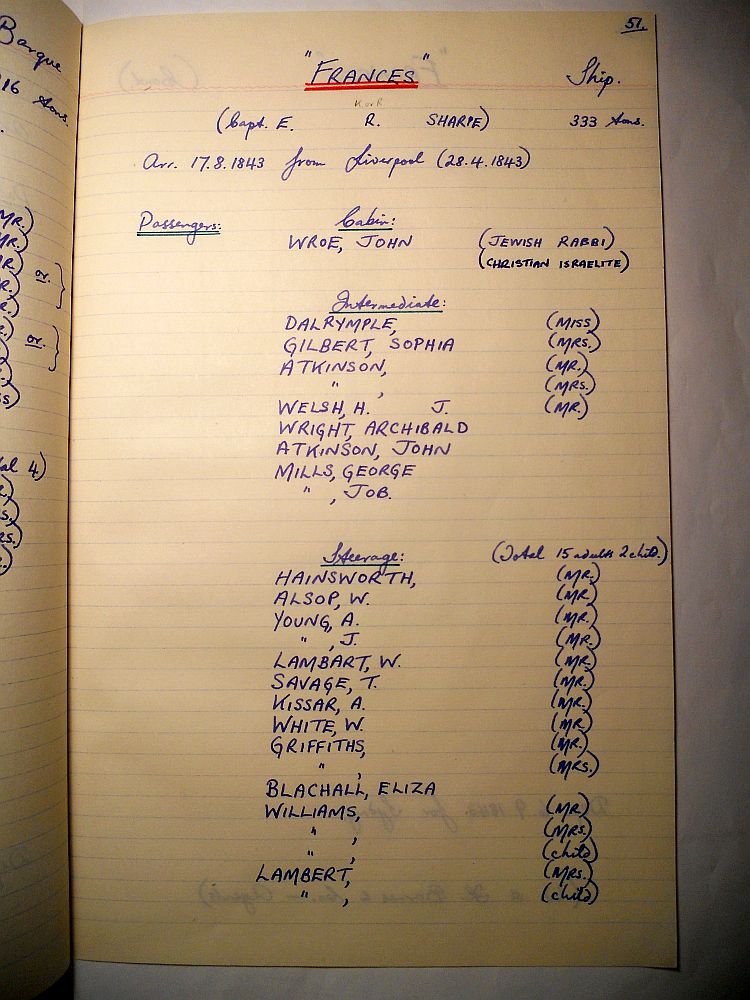 51.
"FRANCES" Ship.
K or R
(Capt. E. R. SHARPE) 333 tons.
Arr. 17.8.1843 from Liverpool (28.4.1843)
Passengers: Cabin:
WROE, JOHN (JEWISH RABBI)
(CHRISTIAN ISRAELITE)
Intermediate:
DALRYMPLE, (MISS)
GILBERT, SOPHIA (MRS.)
ATKINSON, (MR.)
" , (MRS.)
WELSH, H. J. (MR.)
WRIGHT, ARCHIBALD
ATKINSON, JOHN
MILLS, GEORGE
" , JOB.
Steerage: (Total 15 adults 2 child.)
HAINSWORTH, (MR.)
ALSOP, W. (MR.)
YOUNG, A. (MR.)
" , J. (MR.)
LAMBART, W. (MR.)
SAVAGE, T. (MR.)
KISSAR, A. (MR.)
WHITE, W. (MR.)
GRIFFITHS, (MR.)
" , (MRS.)
BLACHALL, ELIZA
WILLIAMS, (MR)
" , (MRS.)
" , (child)
LAMBERT, (MRS.)
" , (child)
Barque
16 tons.
MR.)
MR.)
MR.) or.
R.)
R.)
or.
al 4)